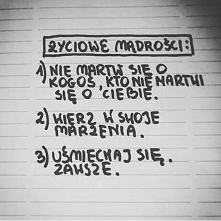 ŻYCIOWE MĄDROŚCI:
1) NIE MARTW SIĘ O
KOGOŚ, KTO NIE MARTWI
SIĘ O CIEBIE.
2) WIERZ W SWOJE
MARZENIA.
3) UŚMIECHAJ SIĘ.
ZAWSZE.